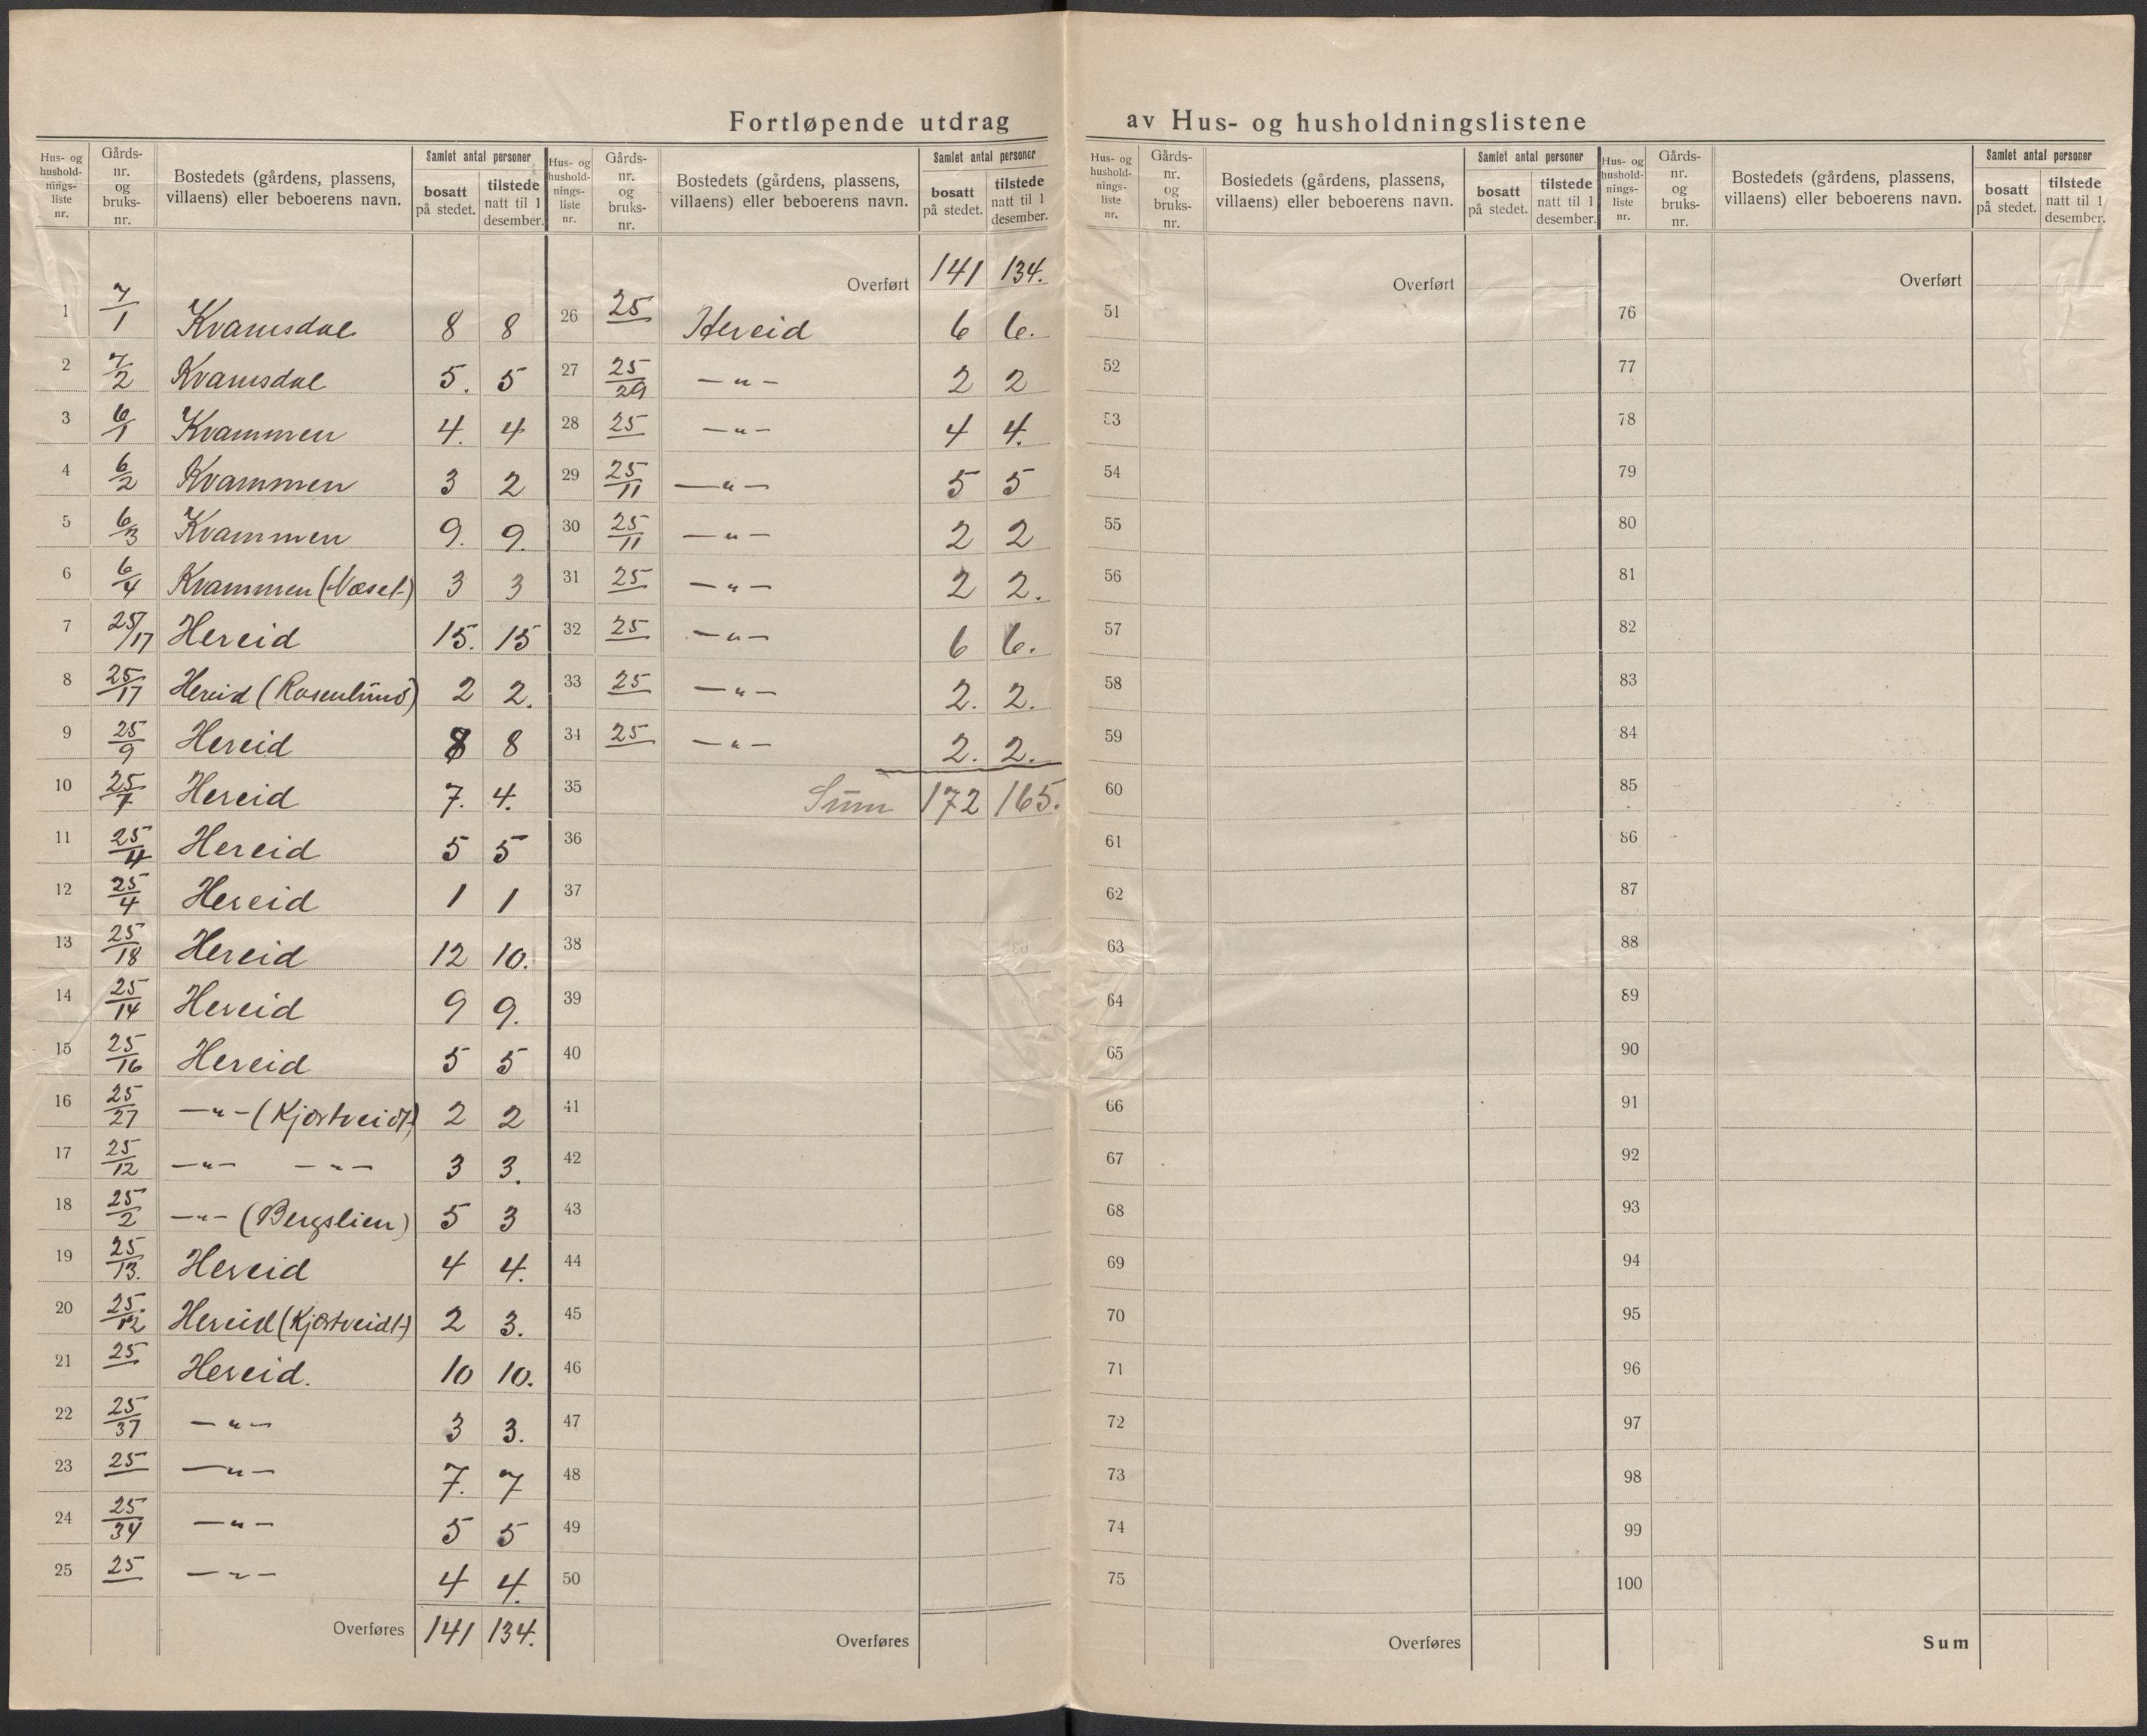 Fortløpende utdrag av Hus- og husholdningslistene
Hus- og hushold-nings-liste nr. | Gårds-nr. og bruks-nr. | Bostedets (gårdens, plassens, villaens) eller beboerens navn. | Samlet antal personer | bosatt på stedet. | tilstede natt til 1 desember.
1 7/1 Kvamsdal 8 8
2 7/2 Kvamsdal 5. 5
3 6/1 Kvammen 4. 4
4 6/2 Kvammen 3 2
5 6/3 Kvammen 9. 9.
6 6/4 Kvammen (Næset) 3 3
7 25/17 Hereid 15. 15
8 25/17 Hereid (Rosenlund) 2 2.
9 25/9 Hereid 8 8
10 25/7 Hereid 7. 4.
11 25/4 Hereid 5 5
12 25/4 Hereid 1 1
13 25/18 Hereid 12 10.
14 25/14 Hereid 9 9.
15 25/16 Hereid 5 5
16 25/27 —"— (Kjærtveidt) 2 2
17 25/12 —"— —"— 3 3.
18 25/2 —"— (Bergslien) 5 3
19 25/13. Hereid 4 4.
20 25/12 Hereid (Kjærtveidt) 2 3.
21 25 Hereid. 10 10.
22 25/37 —"— 3 3.
23 25 —"— 7. 7
24 25/34 —"— 5 5
25 25 —"— 4 4.
Overføres 141 134.
Hus- og hushold-nings-liste nr. | Gårds-nr. og bruks-nr. | Bostedets (gårdens, plassens, villaens) eller beboerens navn. | Samlet antal personer | bosatt på stedet. | tilstede natt til 1 desember.
Overført 141 134.
26 25 Hereid 6 6.
27 25/29 —"— 2 2
28 25 —"— 4 4.
29 25/11 —"— 5 5
30 25/11 —"— 2 2
31 25 —"— 2 2.
32 25 —"— 6 6.
33 25 —"— 2. 2.
34 25 —"— 2. 2.
35 Sum 172 165.
36
37
38
39
40
41
42
43
44
45
46
47
48
49
50
Overføres
Hus- og hushold-nings-liste nr. | Gårds-nr. og bruks-nr. | Bostedets (gårdens, plassens, villaens) eller beboerens navn. | Samlet antal personer | bosatt på stedet. | tilstede natt til 1 desember.
Overført
51
52
53
54
55
56
57
58
59
60
61
62
63
64
65
66
67
68
69
70
71
72
73
74
75
Overføres
Hus- og hushold-nings-liste nr. | Gårds-nr. og bruks-nr. | Bostedets (gårdens, plassens, villaens) eller beboerens navn. | Samlet antal personer | bosatt på stedet. | tilstede natt til 1 desember.
Overført
76
77
78
79
80
81
82
83
84
85
86
87
88
89
90
91
92
93
94
95
96
97
98
99
100
Sum